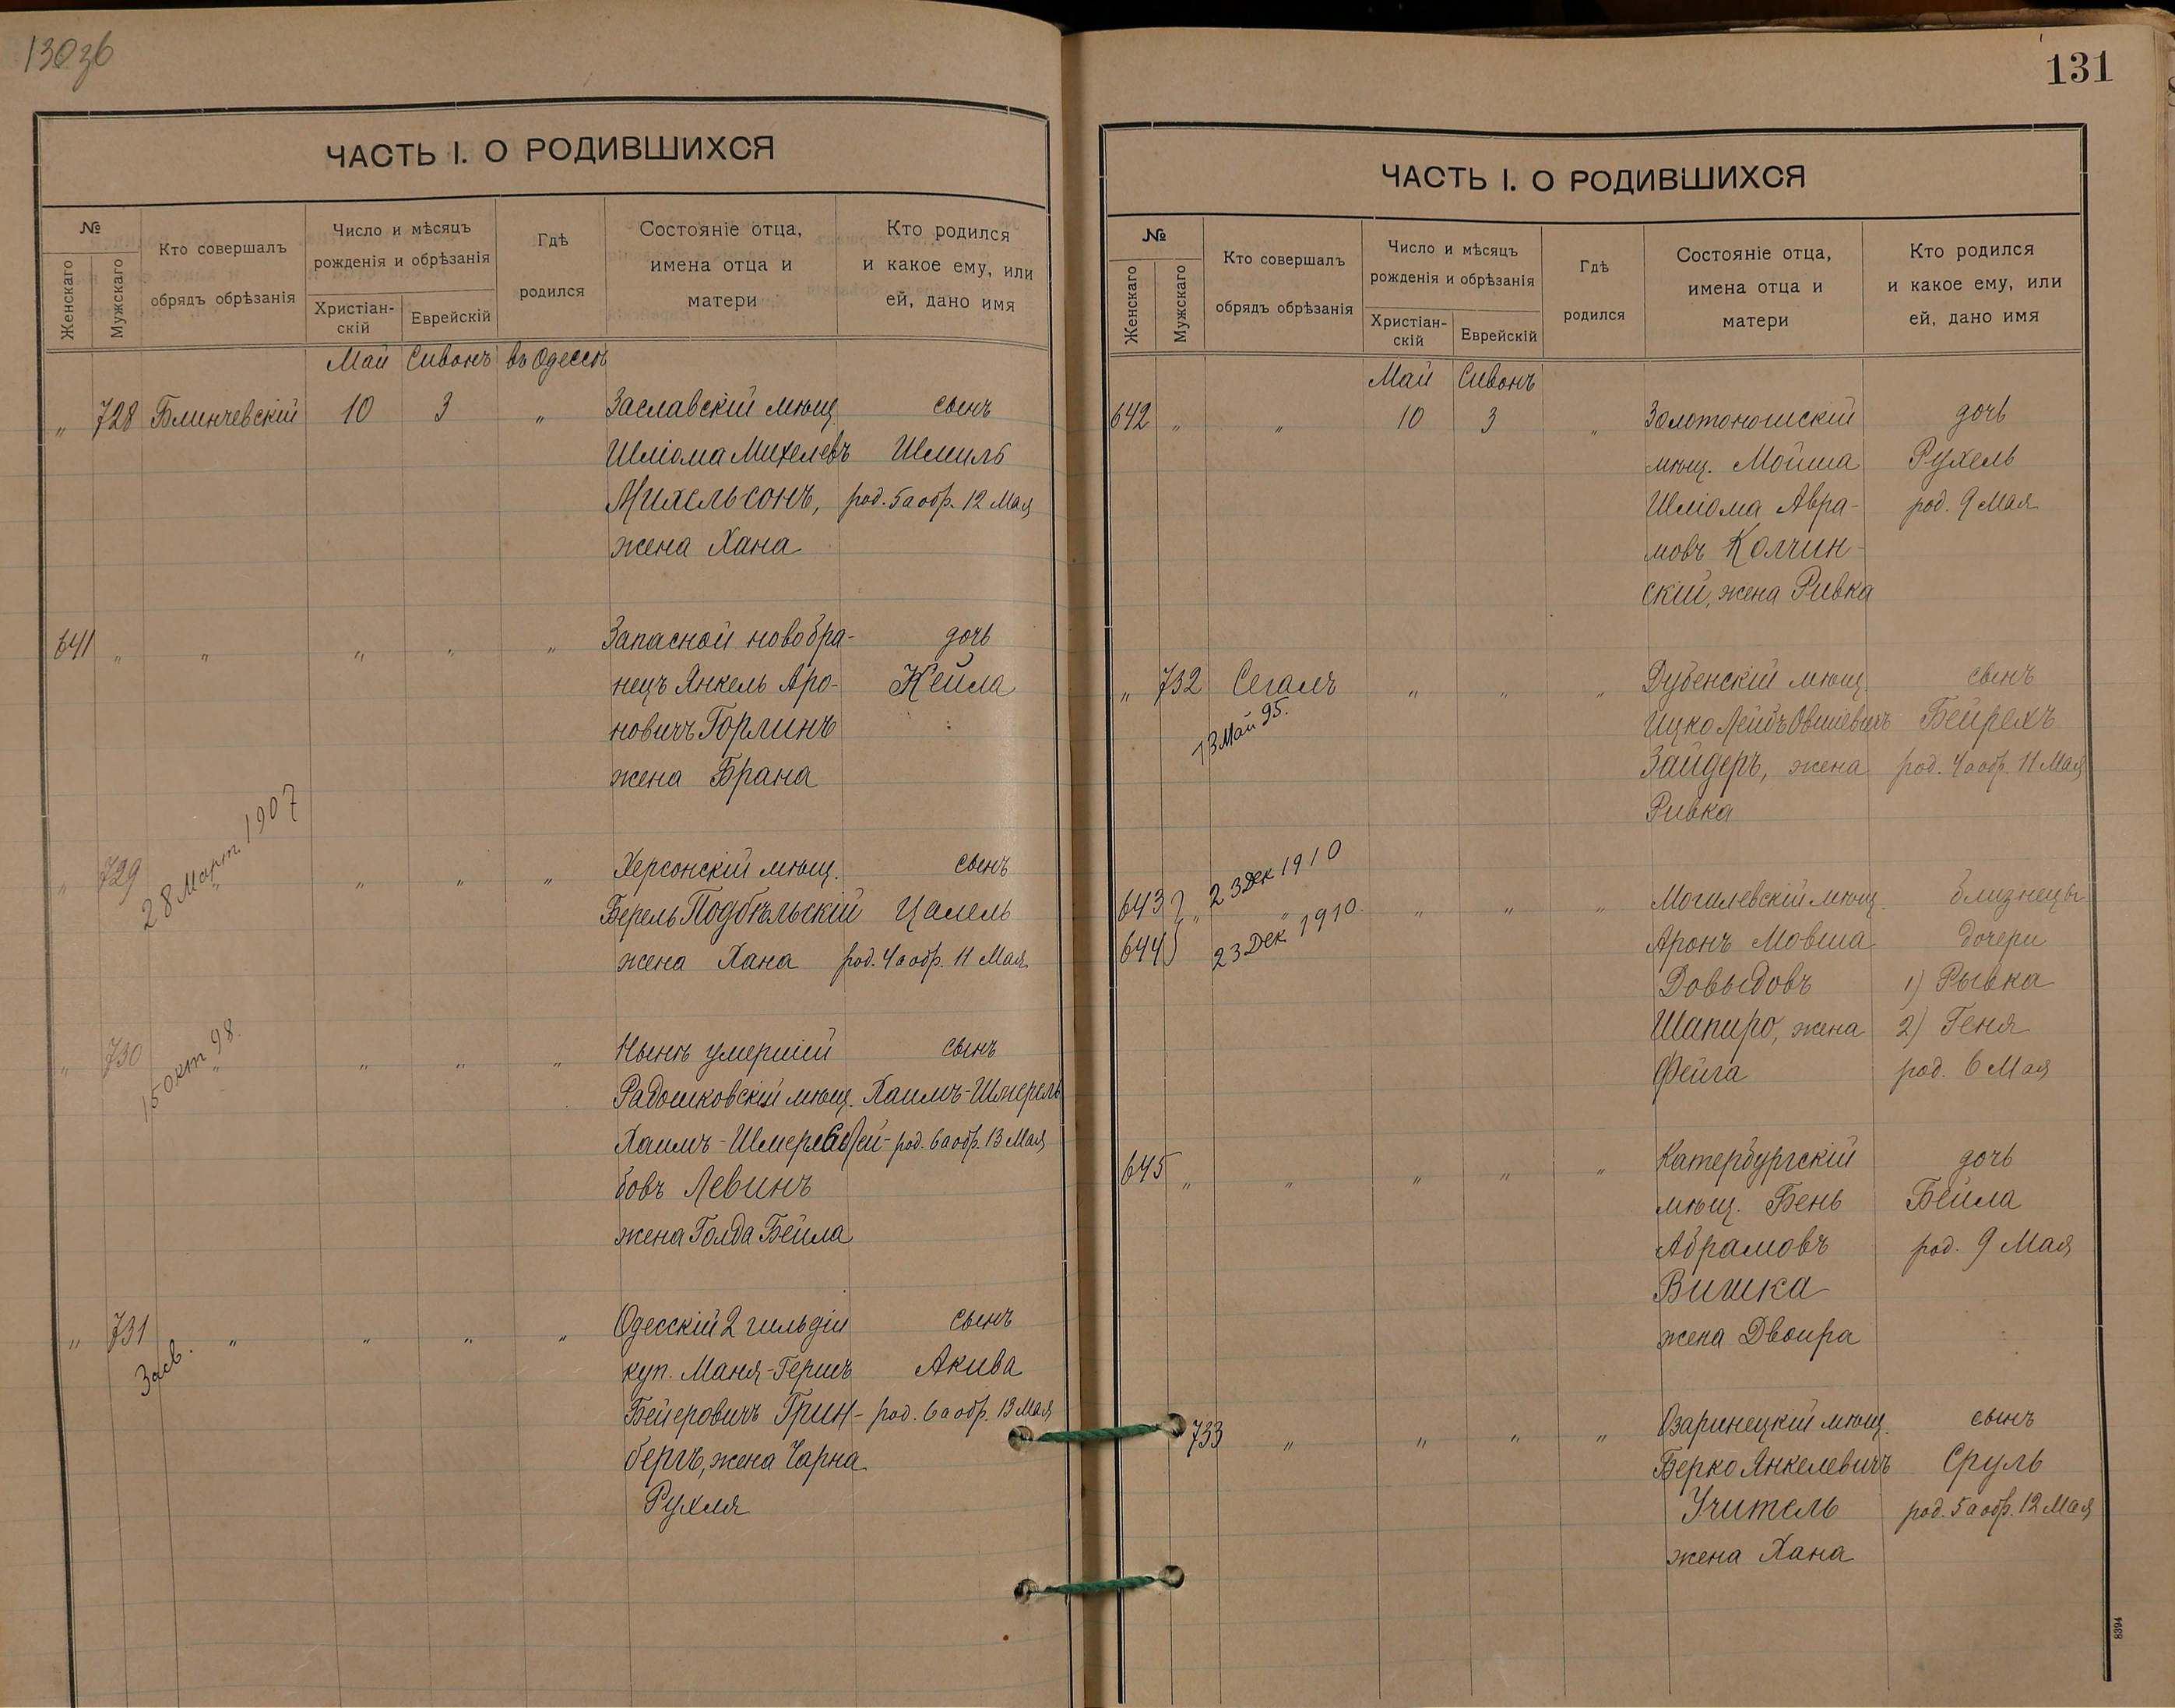 130 зб
ЧАСТЬ I. О РОДИВШИХСЯ
№
Женскаго
Мужскаго
Кто совершалъ
обрядъ обрѣзанія
Число и мѣсяцъ
рожденія и обрѣзанія
Христіан-
скій
Еврейскій
Гдѣ
родился
Состояніе отца,
имена отца и
матери
Кто родился
и какое ему, или
ей, дано имя
Май Сивонъ въ Одессѣ
„ 728 Блинчевскій 10 3 „ Заславскій мѣщ. сынъ
Шліома Михелевъ Шмиль
Михельсонъ, род. 5 а обр. 12 Мая
жена Хана
641 „ „ „ „ „ Запасной новобра- дочь
нецъ Янкель Аро- Кейла
новичъ Горлинъ
жена Брана
„ 729 „ „ „ „ Херсонскій мѣщ. сынъ
28 Март. 1907
Берель Подбѣльскій Цалель
жена Хана род. 4 а обр. 11 Мая
„ 730 „ „ „ „ Нынѣ умершій сынъ
15 окт 98.
Радошковскій мѣщ. Хаимъ-Шмерель
Хаимъ-Шмерель Лей- род. 6 а обр. 13 Мая
бовъ Левинъ
жена Голда Бейла
„ 731 „ „ „ „ Одесскій 2 гильдіи сынъ
Засв.
куп. Маня-Гершъ Акива
Бейеровичъ Грин- род. 6 а обр. 13 Мая
бергъ, жена Чарна
Рухля
131
ЧАСТЬ I. О РОДИВШИХСЯ
№
Женскаго
Мужскаго
Кто совершалъ
обрядъ обрѣзанія
Число и мѣсяцъ
рожденія и обрѣзанія
Христіан-
скій
Еврейскій
Гдѣ
родился
Состояніе отца,
имена отца и
матери
Кто родился
и какое ему, или
ей, дано имя
Май Сивонъ
642 „ „ 10 3 „ Золотоношскій дочь
мѣщ. Мойша Рухель
Шліома Авра- род. 9 Мая
мовъ Колчин-
скій, жена Ривка
„ 732 Сегалъ „ „ „ Дубенскій мѣщ. сынъ
13 Май 95.
Ицко Лейбъ Овшіевичъ Бейрехъ
Зайдеръ, жена род. 4 а обр. 11 Мая
Ривка
643 „ „ „ „ „ Могилевскій мѣщ. близнецы
23 Дек 1910
644 Аронъ Мовша дочери
23 Дек 1910.
Довыдовъ 1) Рывка
Шапиро, жена 2) Геня
Фейга род. 6 Мая
645 „ „ „ „ „ Катербургскій дочь
мѣщ. Бень Бейла
Абрамовъ род. 9 Мая
Вишка
жена Двойра
733 „ „ „ „ Озаринецкій мѣщ. сынъ
Берко Янкелевичъ Сруль
Учитель род. 5 а обр. 12 Мая
жена Хана
8394